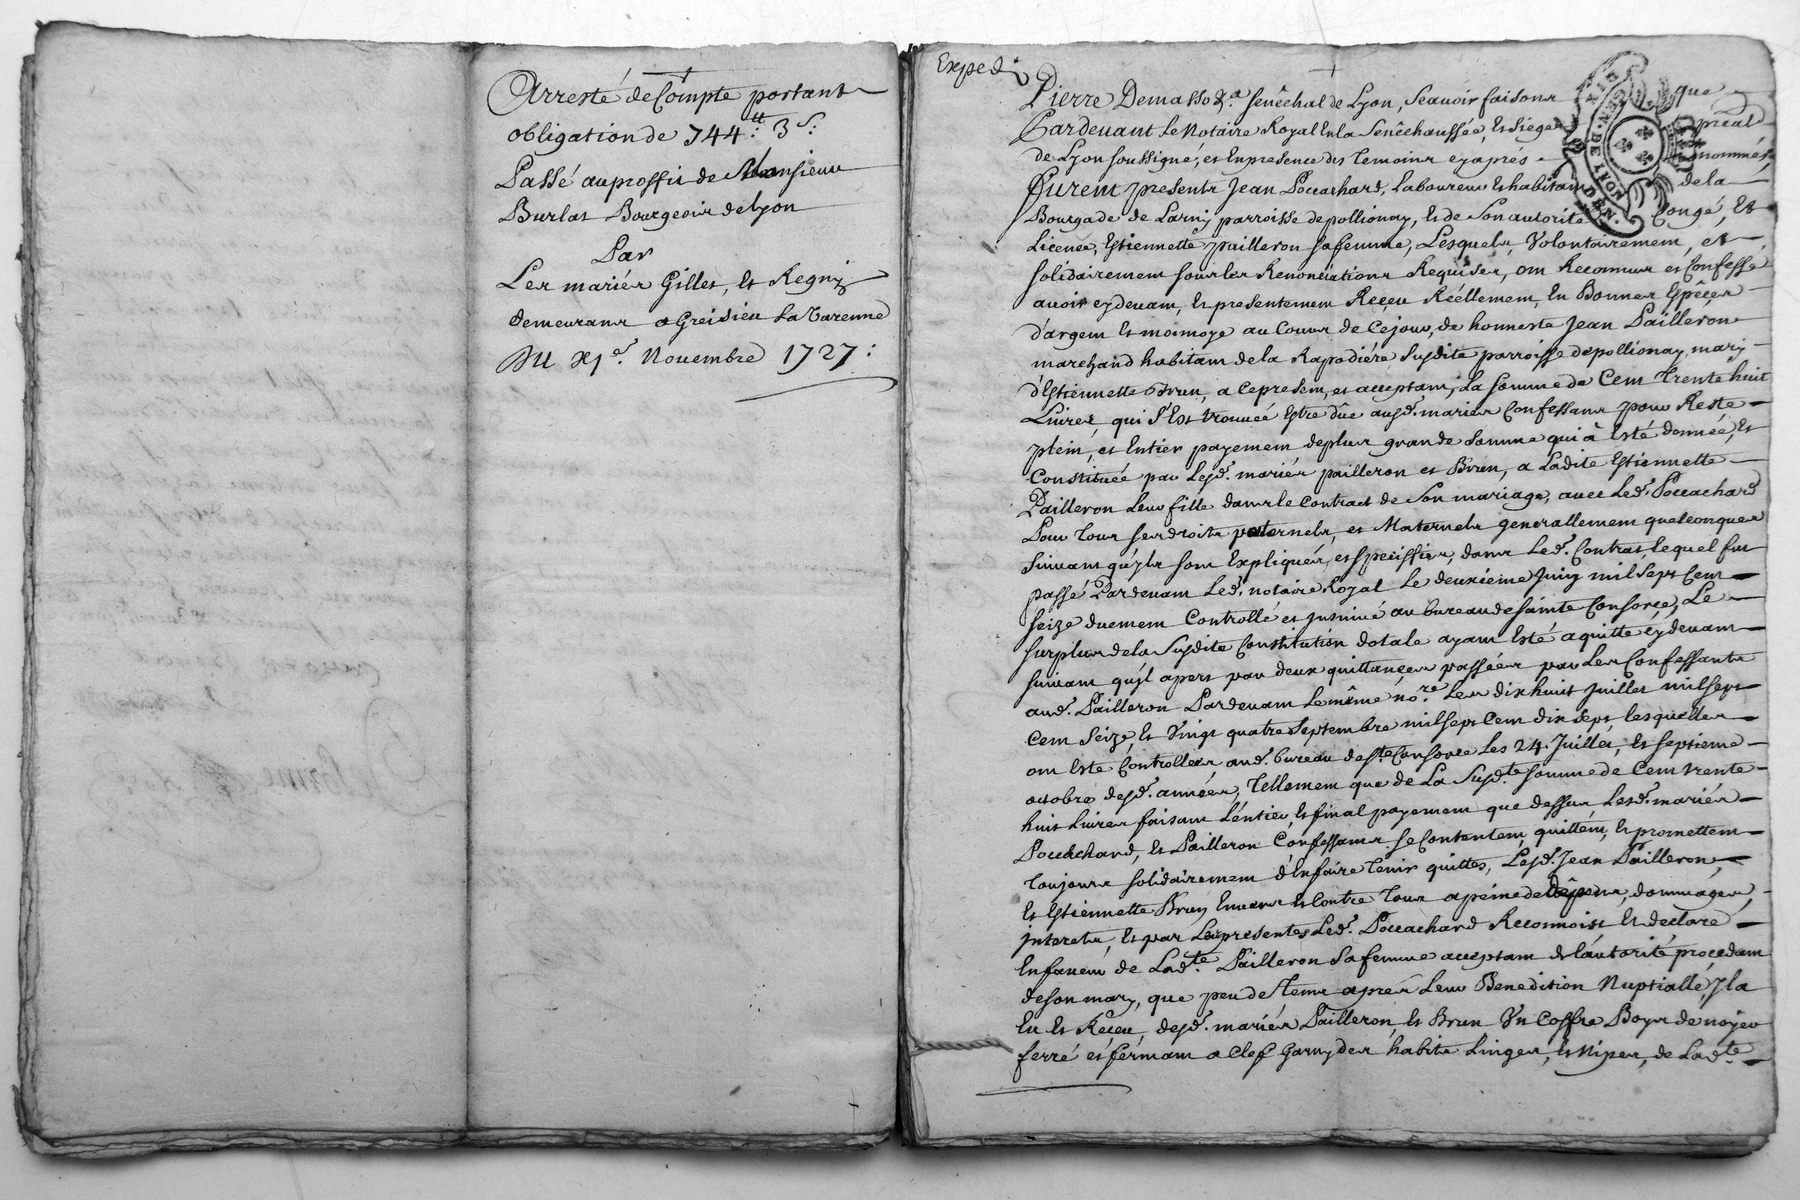 Arresté de Compte portant
obligation de 744ᵗᵗ: 3ˢ:
Passé au proffit de Monsieur
Burlat Bourgeois de Lyon
Par
Les mariés Gilles, et Regny
demeurans a Greisieu La Varenne
Du xjᵉ. Novembre 1727:
Exped
Pierre Demasso &ᵃ senêchal de Lyon, scavoir faisons que
Pardevant Le Notaire Royal En la Senêchaussée, et siege préal
de Lyon soussigné, et En presence des temoins cy aprés nommés,
furent presents Jean Poccachard, Laboureur et habitant de la
Bourgade de Larny parroisse de pollionay, et de son autorité Congé, Et
Licence, Estiennette pailleron sa femme, Lesquels Volontairement, et
solidairement sous les Renonciations Requises, ont Reconnus et Confessé
avoir cy devant, et presentement Reçeu Réellement, En Bonnes Espêces
d'argent et monnoye au Cours de Cejour, de honneste Jean Pailleron
marchand habitant de la Rapodiére susdite parroisse de pollionay, mary
d'Estiennette Brun, a Ce present, et acceptant, La somme de Cent trente huit
Livres, qui s'Est trouvée Estre dûe ausdˢ. mariés Confessans pour Reste
plein, et Entier payement de plus grande somme qui à Esté donnée, Et
Constituée par Lesdˢ. mariés pailleron et Brun, a Ladite Estiennette
Pailleron Leur fille dans le Contract de son mariage, avec Ledᵗ. Poccachard
Pour tous ses droits paternels, et Maternels generallement quelconques
suivant qu'jls sont Expliqués, et speciffiés, dans Ledᵗ. Contrat, lequel fut
passé Pardevant Ledᵗ. notaire Royal Le deuxieme Juin mil sept Cent
seize duement Controllé et jnsinué au bureau de sainte Consorce, Le
surplus de la susdite Constitution dotale ayant Esté aquitté cy devant
suivant qu'jl apert par deux quittances passées par Les Confessants
audᵗ. Pailleron Pardevant Le même noʳᵉ. Les dix huit Juillet mil sept
Cent seize, Et Vingt quatre septembre mil sept Cent dix sept lesquelles
ont Esté Controllées audᵗ. bureau de sᵗᵉ Consorce Les 24. Juillet, Et septieme
octobre desdˢ. années, tellement que de La susdᵗᵉ somme de Cent trente
huit Livres faisant L'entier, Et final payement que dessus Lesdˢ. mariés
Poccachard, Et Pailleron Confessans se Contentent, quittent, Et promettent
toujours solidairement d'En faire tenir quittes, Lesdˢ. Jean Pailleron,
Et Estiennette Brun Envers Et Contre tous a peine de dêpens, dommages,
jnterets, Et par Les presentes Ledᵗ. Poccachard Reconnoist Et declare
En faveur de Ladᵗᵉ. Pailleron sa femme acceptant de l'autorité procedant
de son mary, que peu de tems aprés Leur Benediction Nuptialle, jl a
Eu et Reçeu, desdˢ. mariés Pailleron, Et Brun Vn Coffre Boys de noyer
ferré et fermant a Clef Garny des habits Linges, et Nipes, de Ladᵗᵉ